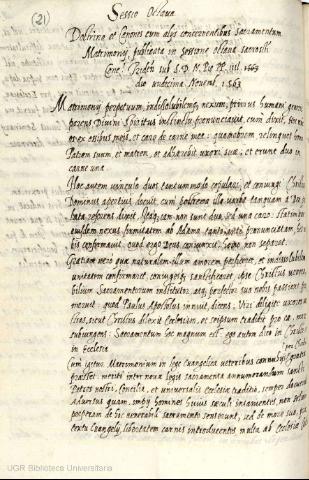 (21)
Sessio Octava
Doctrina et Canones cum aliis concernentibus sacramentum
Matrimonij, publicata in sessione octava sacrosti
Conc. Trident sub S. D. N. Pio PP. iiii. 1563
die undecima Novemb. 1563
Matrimonij perpetuum, indissolubilemq nexum, primus humani generis
parens Divini spiritus instinctu pronunciavit, cum dixit, hoc nunc
os ex ossibus meis, et caro de carne mea: quamobrem relinquet homo
Patrem suum et matrem, et adhærebit uxori suæ, et erunt duo in
carne una.
Hoc autem vinculo duos tantummodo copulari, et coniungi Christus
Dominus apertius docuit, cum postrema illa verba tanquam a Deo pro
lata referens dixit, Itaq iam non sunt duo, sed una caro: statimq
eiusdem nexus firmitatem ab Adamo tanto ante pronunciatam, his ver
bis confirmavit, quod ergo Deus coniunxit, homo non separet.
Gratiam vero quæ naturalem illum amorem perficeret, et indissolubilem
unitatem confirmaret, coniugesq sanctificaret, ipse Christus venera
bilium Sacramentorum institutor, atq perfector sua nobis passione pro
meruit: quod Paulus Apostolus innuit, dicens, Viri diligite uxores ves
tras, sicut Christus dilexit Ecclesiam, et seipsum tradidit pro ea, mox
subiungens: Sacramentum hoc magnum est: ego autem dico in Christo
et in Ecclesia
Cum igitur Matrimonium in lege Evangelica veteribus connubijs per Christum gratia
præstet: merito inter novæ legis sacramenta annumerandum sancti
Patres nostri, Concilia, et universalis ecclesiæ traditio, semper docuerunt
Adversus quam impij homines huius sæculi insanientes, non solum
perperam de hoc venerabili sacramento senserunt, sed de more suo, præ
textu Evangelij, libertatem carnis introducentes, multa ab Ecclesiæ
UGR Biblioteca Universitaria